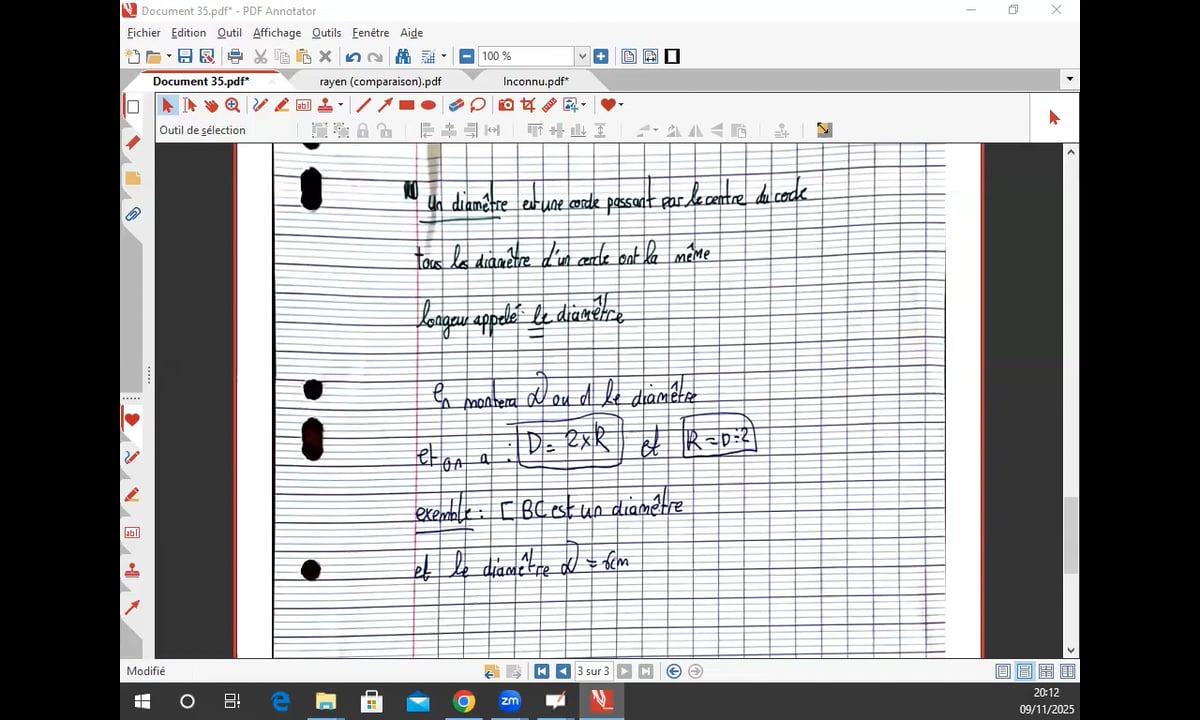 Document 35.pdf* - PDF Annotator
Fichier Edition Outil Affichage Outils Fenêtre Aide
100 %
Document 35.pdf* rayen (comparaison).pdf Inconnu.pdf*
Outil de sélection
un diamêtre est une corde passant par le centre du cecle
tous les diamêtre d'un cercle ont la même
longeur appelé le diamêtre
ou d le diamêtre
et on a : D = 2xR et R = D:2
exemble : [BC est un diamêtre
et le diamêtre D = 6cm
Modifié 3 sur 3
zm
20:12
09/11/2025